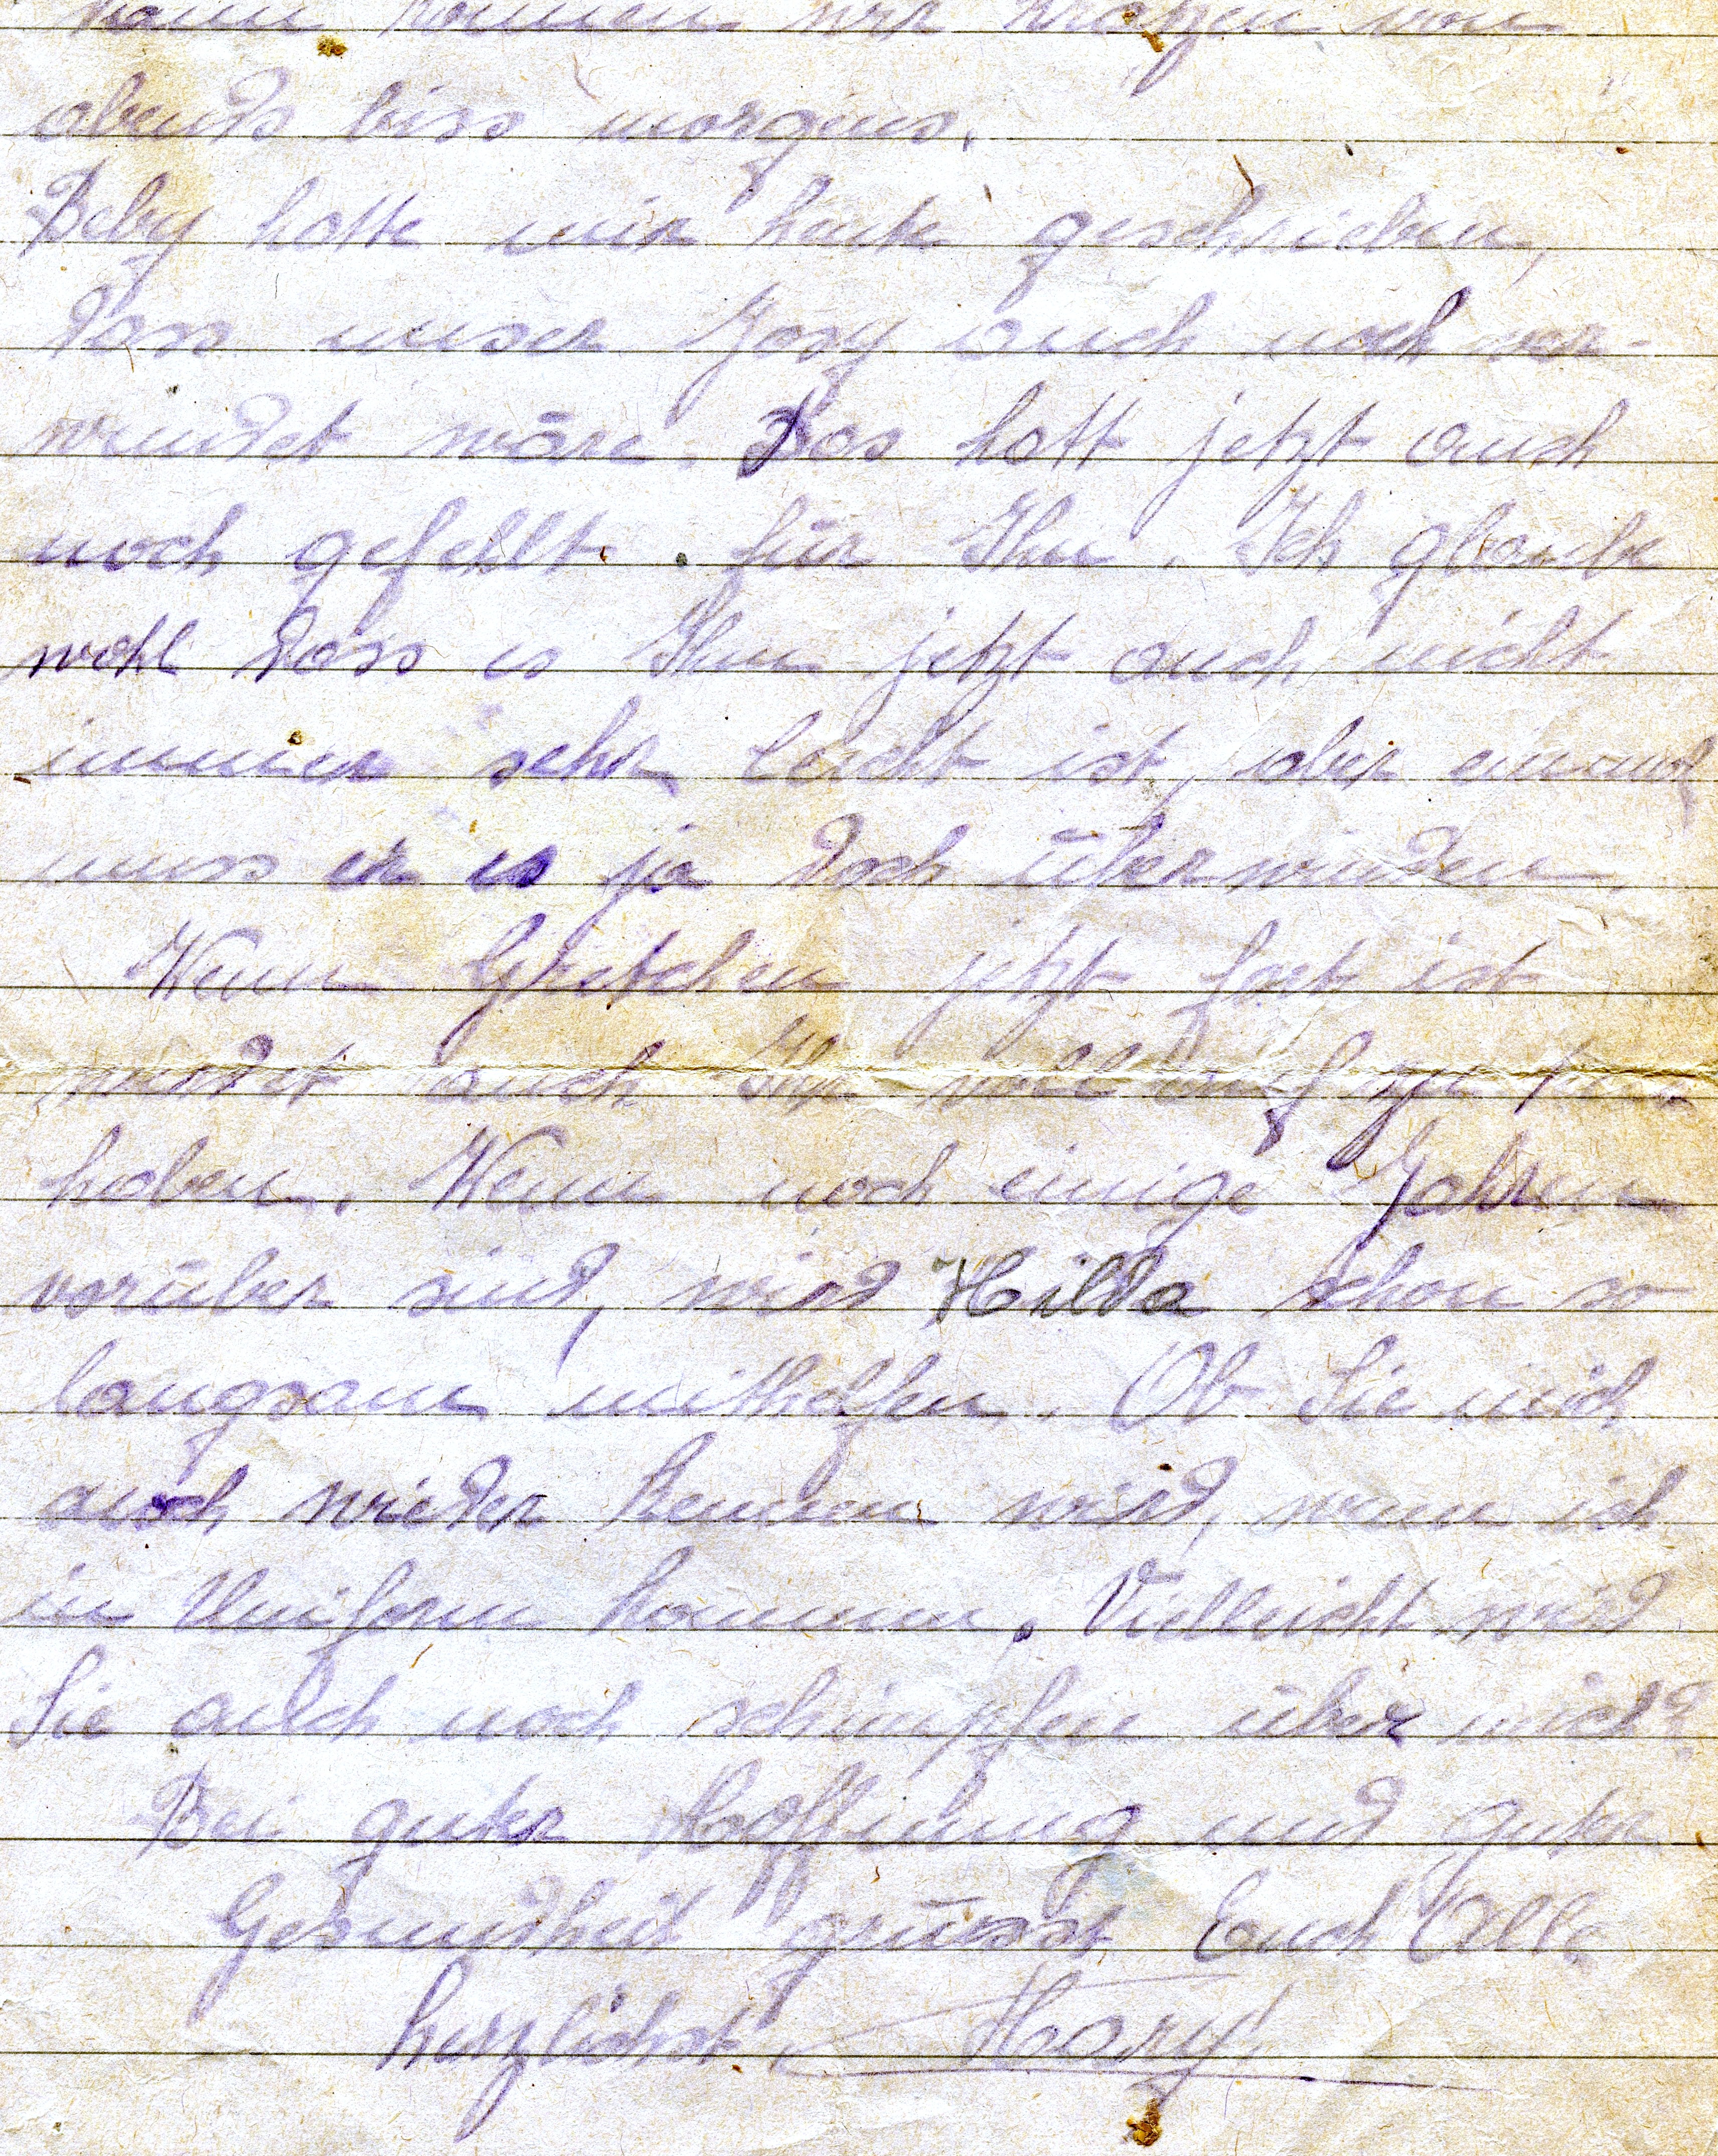 dann können wir kratzen von
abends biss morgens.
Beby hatte mir heute geschrieben,
dass unser Josy auch noch ver-
wundet wäre. Das hatt jetzt auch
noch gefehlt. für Ihn. Ich glaube
wohl dass es Ihm jetzt auch nicht
immer sehr leicht ist, aber einmal
muss er es ja doch überwinden.
Wenn Gretchen jetzt fort ist
werdet auch Ihr voll auf zu tun
haben. Wenn noch einige Jahren
vorüber sind, wird Hilda schon so
langsam mithelfen. Ob Sie mich
auch wieder kennen wird, wenn ich
in Uniform kommen. Vielleicht wird
Sie auch noch schimpfen über mich?
Bei guter Hoffnung und guter
Gesundheit grüsst Euch Alle
herzlichst